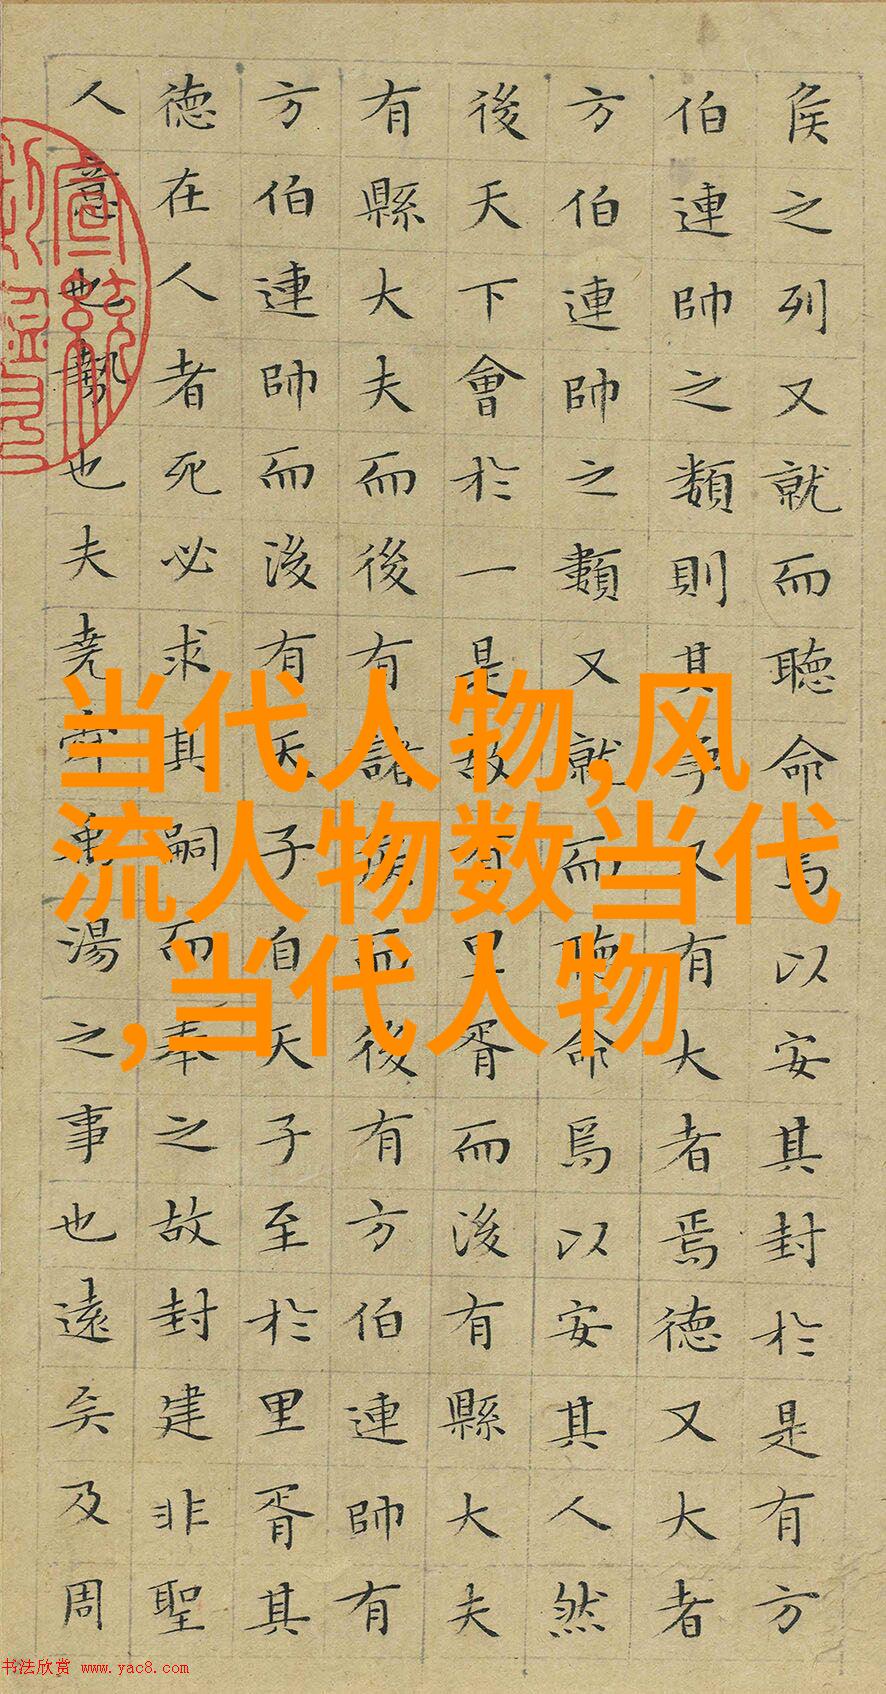 侯之列又就而聽命焉以安其封於是有方
伯連帥之類則其爭又有大者焉德又大者
方伯連帥之類又就而聽命焉以安其人然
後天下會於一是故有里胥而後有縣大夫
有縣大夫而後有諸侯而後有方伯連帥有
方伯連帥而後有天子自天子至於里胥其
德在人者死必求其嗣而奉之故封建非聖
人意也勢也夫堯舜禹湯之事也遠矣及周
当代人物,风
流人物数当代
,当代人物
书法欣赏 www.yac8.com